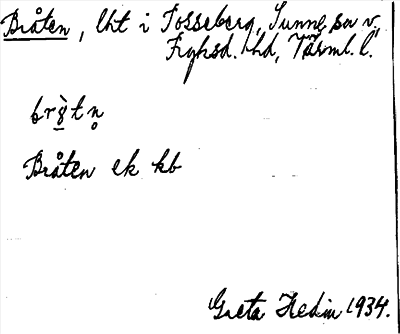 Bråten, lht i Tosseberg, Sunne sn v.
Fryksd. hd, Värml. l.
brò̱tn̥
Bråten ek kb
Greta Hedin 1934.